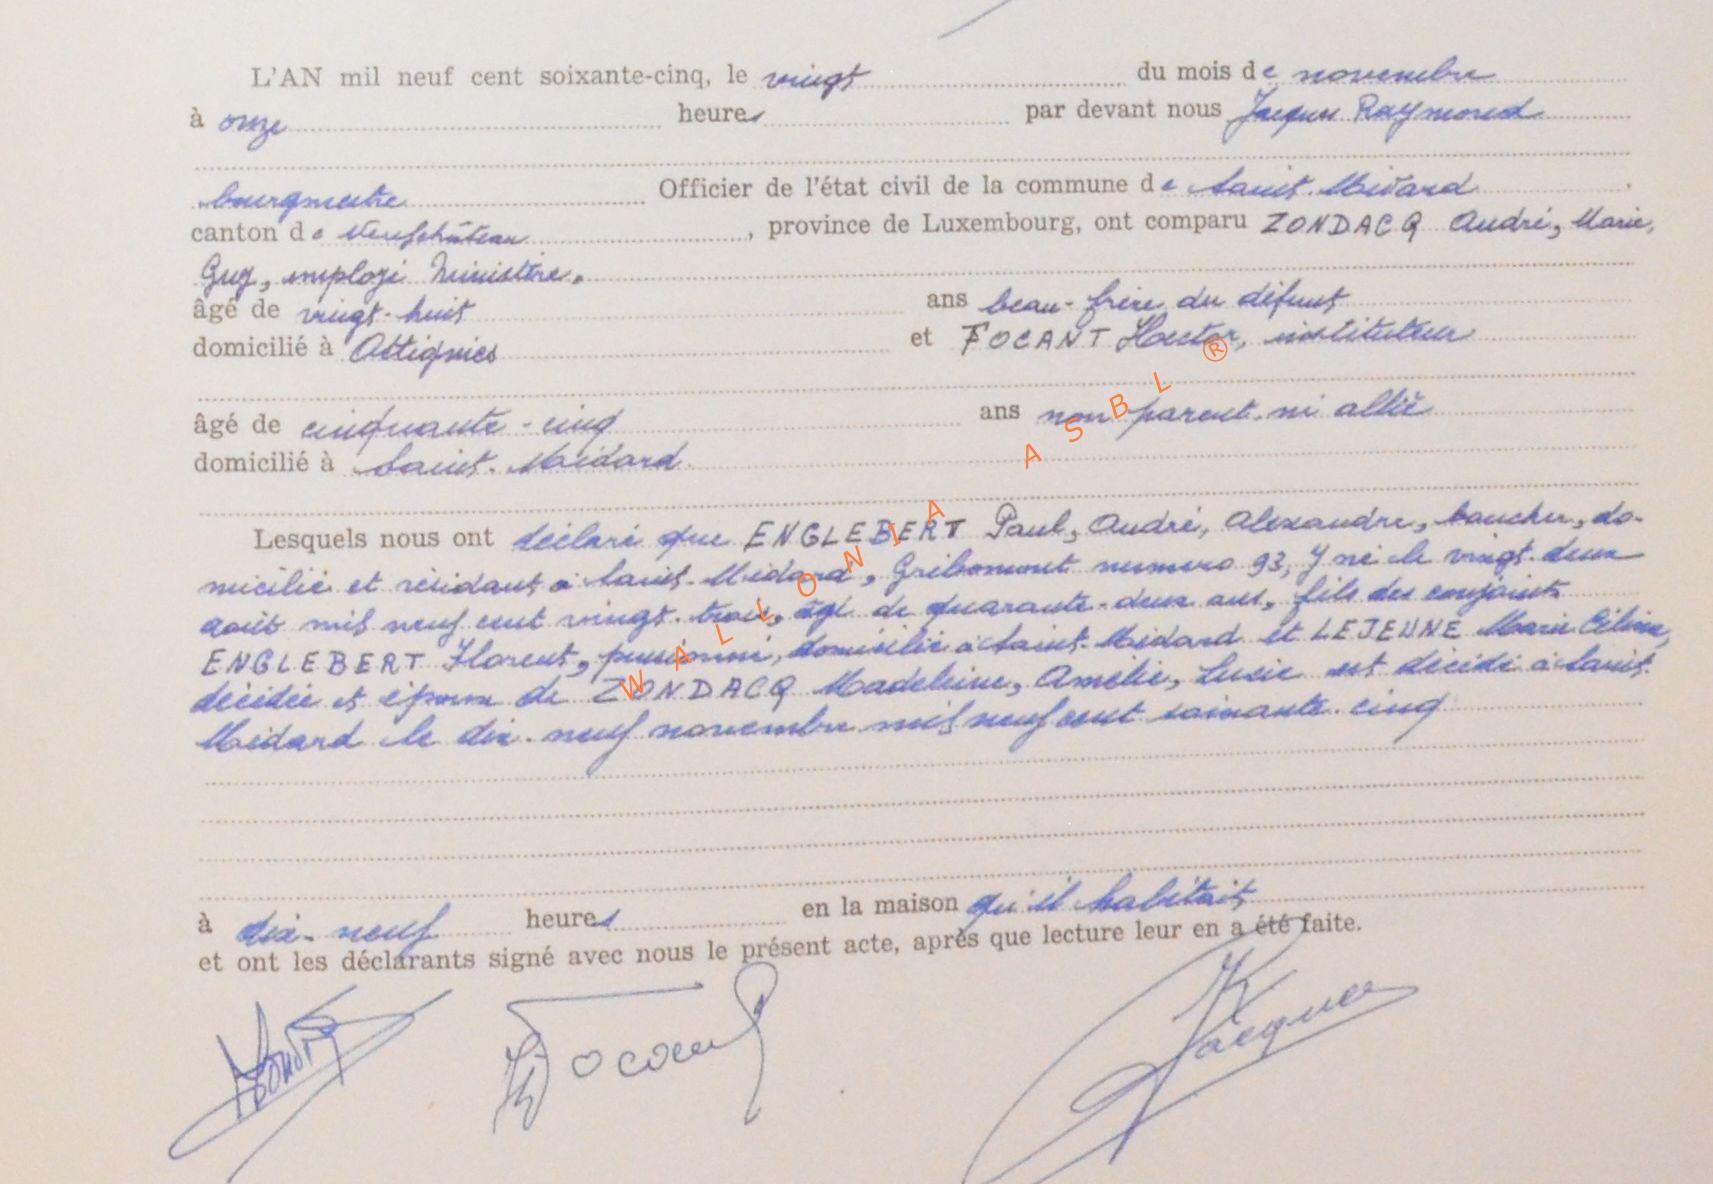 L'AN mil neuf cent soixante-cinq, le vingt du mois de novembre
à onze heures par devant nous Jacques Raymond
bourgmestre Officier de l'état civil de la commune de Saint-Médard
canton de Neufchâteau, province de Luxembourg, ont comparu ZONDACQ André, Marie,
Guy, employé Ministère,
âgé de vingt-huit ans beau-frère du défunt
domicilié à Ottignies et FOCANT Hector, instituteur
âgé de cinquante-cinq ans non parent ni allié
domicilié à Saint-Médard
Lesquels nous ont déclaré que ENGLEBERT Paul, André, Alexandre, boucher, do-
micilié et résidant à Saint-Médard, Gribomont numero 93, y né le vingt-deux
août mil neuf cent vingt-trois, âgé de quarante-deux ans, fils des conjoints
ENGLEBERT Florent, pensionné, domicilié à Saint-Médard et LEJEUNE Marie Célina,
décédée et époux de ZONDACQ Madeleine, Amélie, Lucie est décédé à Saint-
Médard le dix-neuf novembre mil neuf cent soixante-cinq
à dix-neuf heures en la maison qu'il habitait
et ont les déclarants signé avec nous le présent acte, après que lecture leur en a été faite.
Jacques
WALLONIA ASBL ®